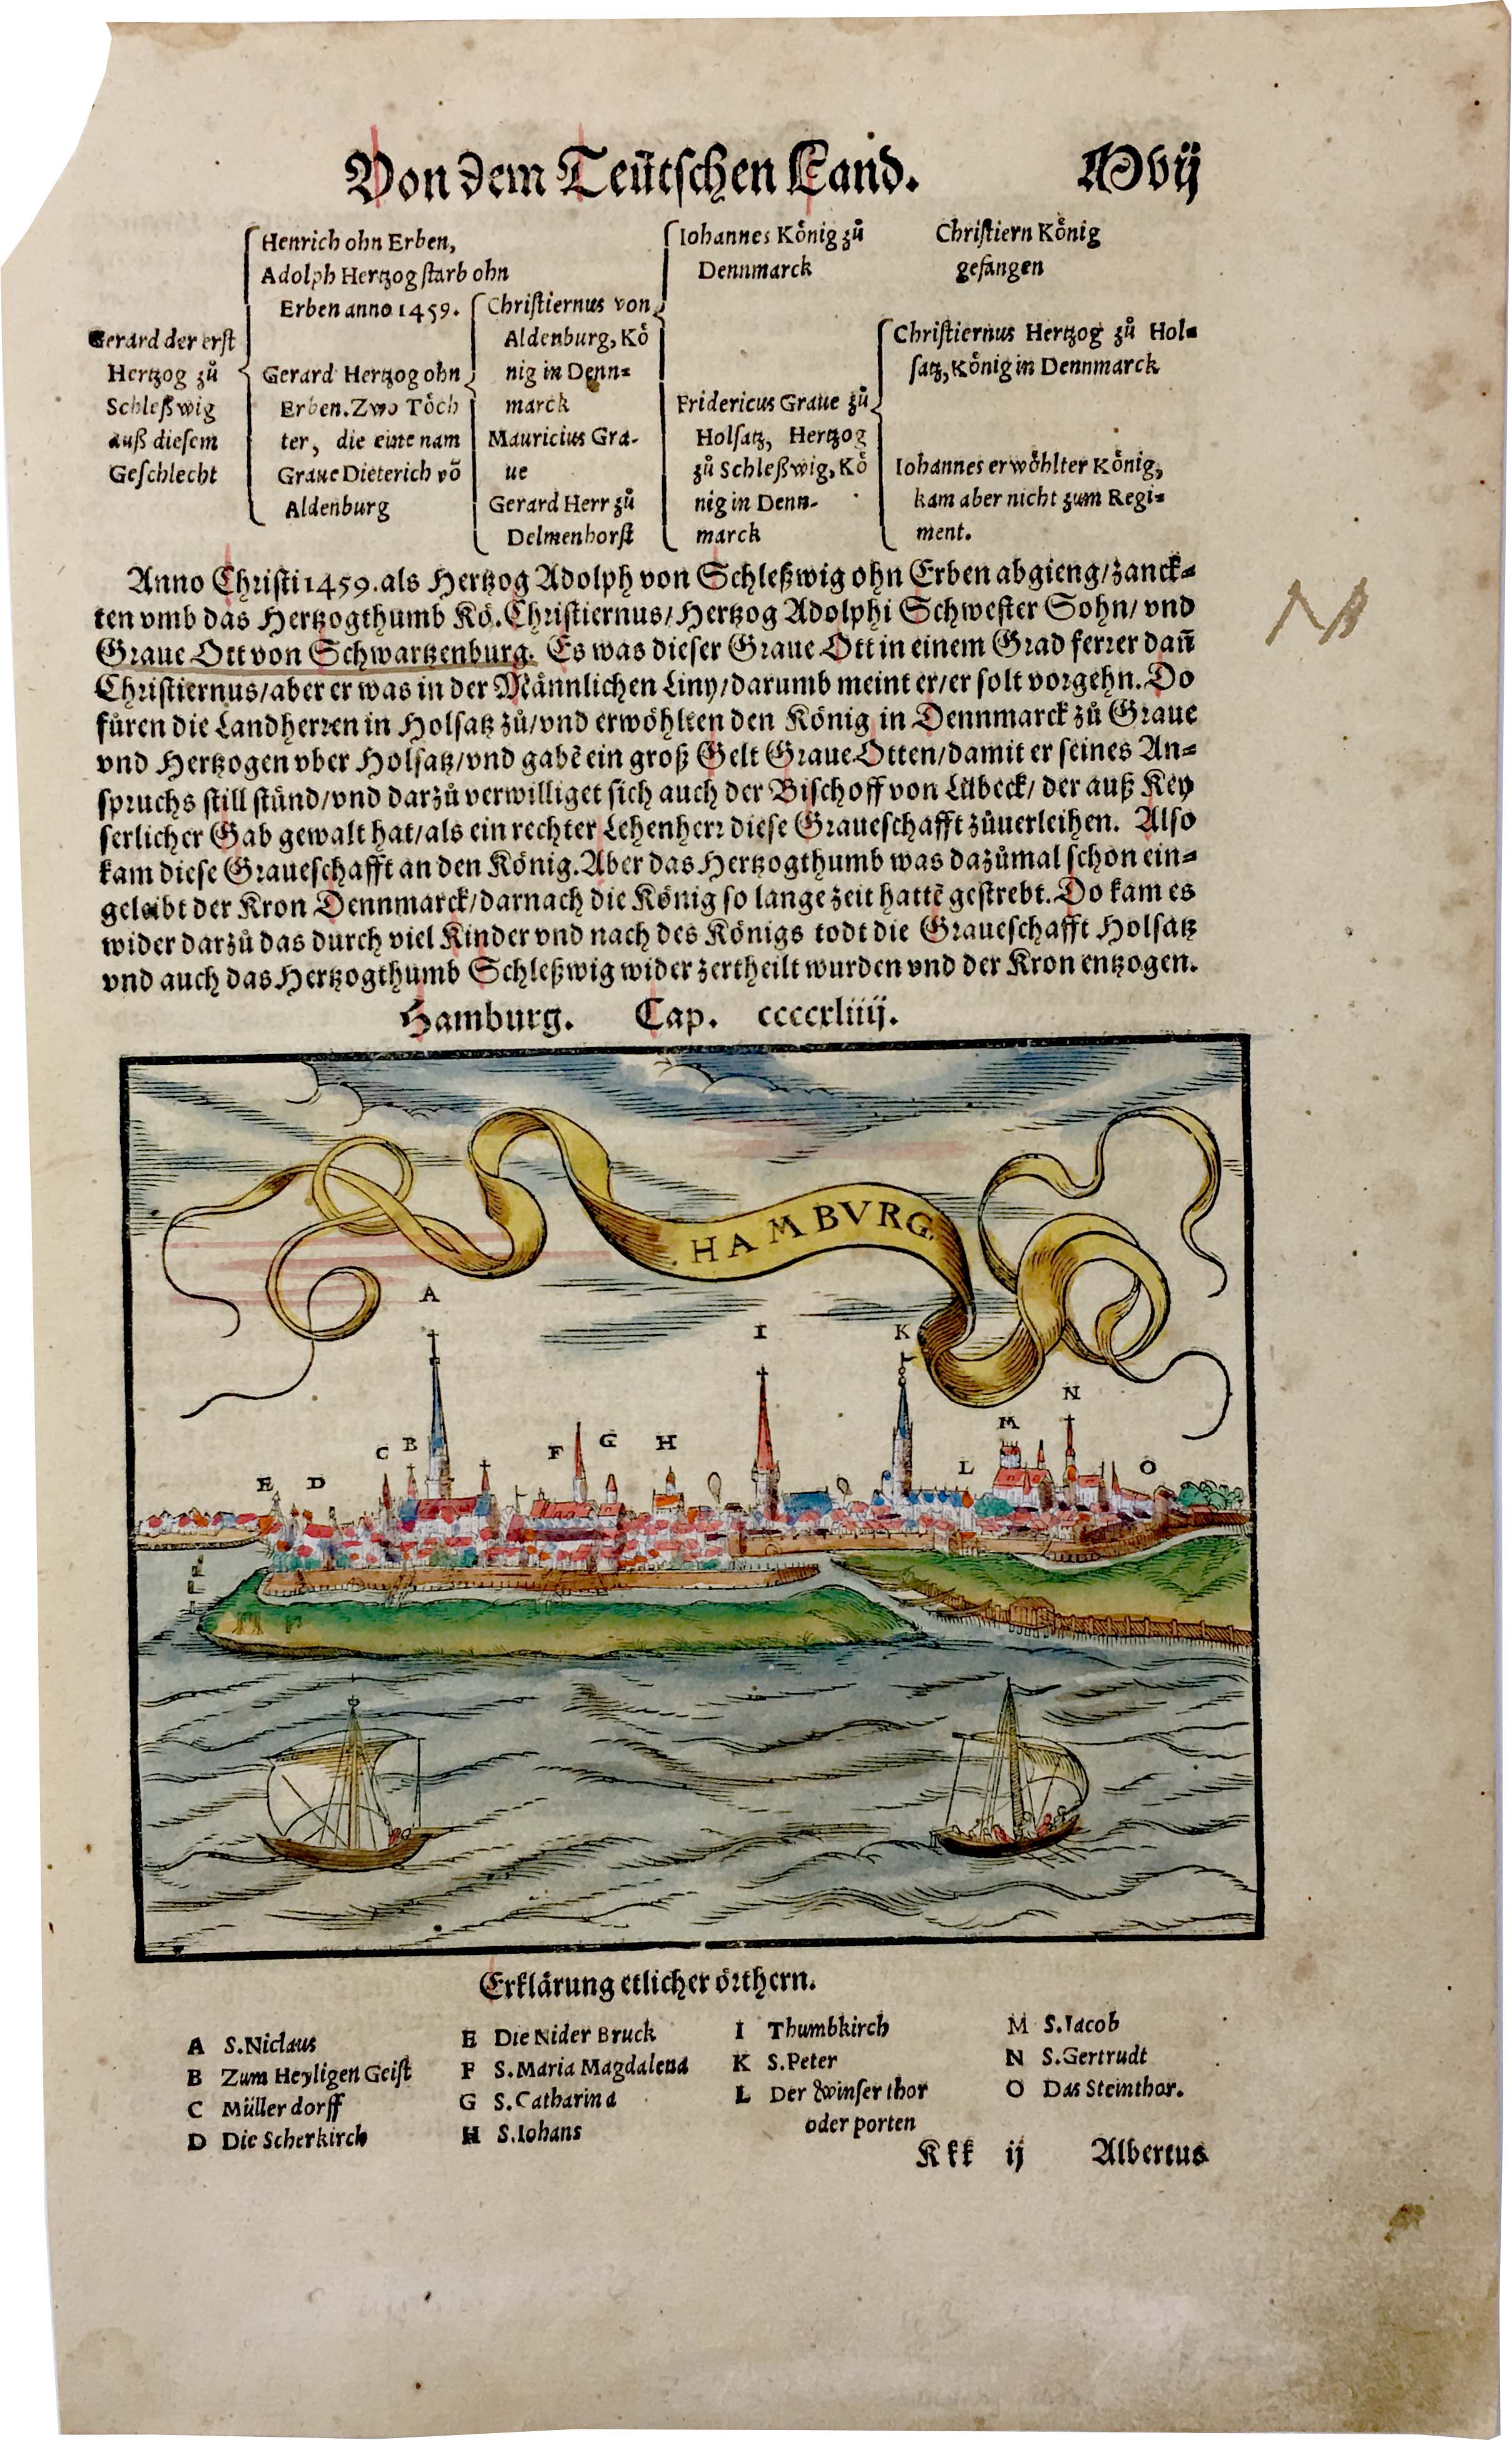 Von dem Teütschen Land. Mvij
Gerard der erst
Hertzog zů
Schleßwig
auß diesem
Geschlecht
Henrich ohn Erben,
Adolph Hertzog starb ohn
Erben anno 1459.
Gerard Hertzog ohn
Erben. Zwo Toͤch
ter, die eine nam
Graue Dieterich võ
Aldenburg
Christiernus von
Aldenburg, Koͤ
nig in Denn=
marck
Mauricius Gra-
ue
Gerard Herr zů
Delmenhorst
Iohannes Koͤnig zů
Dennmarck
Fridericus Graue zů
Holsatz, Hertzog
zů Schleßwig, Koͤ
nig in Denn-
marck
Christiern Koͤnig
gefangen
Christiernus Hertzog zů Hol=
satz, Koͤnig in Dennmarck
Iohannes erwoͤhlter Koͤnig,
kam aber nicht zum Regi=
ment.
Anno Christi 1459. als Hertzog Adolph von Schleßwig ohn Erben abgieng/ zanck=
ten vmb das Hertzogthumb Koͤ. Christiernus/ Hertzog Adolphi Schwester Sohn/ vnd
Graue Ott von Schwartzenburg. Es was dieser Graue Ott in einem Grad ferrer dañ
Christiernus/ aber er was in der Maͤnnlichen Liny/ darumb meint er/ er solt vorgehn. Do
fůren die Landherren in Holsatz zů/ vnd erwoͤhlten den Koͤnig in Dennmarck zů Graue
vnd Hertzogen vber Holsatz/ vnd gabẽ ein groß Gelt Graue Otten/ damit er seines An=
spruchs still stůnd/ vnd darzů verwilliget sich auch der Bischoff von Lübeck/ der auß Key
serlicher Gab gewalt hat/ als ein rechter Lehenherr diese Graueschafft zůuerleihen. Also
kam diese Graueschafft an den Koͤnig. Aber das Hertzogthumb was dazůmal schon ein=
geleibt der Kron Dennmarck/ darnach die Koͤnig so lange zeit hattẽ gestrebt. Do kam es
wider darzů das durch viel Kinder vnd nach des Koͤnigs todt die Graueschafft Holsatz
vnd auch das Hertzogthumb Schleßwig wider zertheilt wurden vnd der Kron entzogen.
Hamburg. Cap. ccccxliiij.
HAMBVRG.
A
I
K
N
M
C B F G H L O
E D
Erklaͤrung etlicher oͤrthern.
A S. Niclaus
B Zum Heyligen Geist
C Müller dorff
D Die Scherkirch
E Die Nider Bruck
F S. Maria Magdalena
G S. Catharina
H S. Iohans
I Thumbkirch
K S. Peter
L Der Winser thor
oder porten
M S. Iacob
N S. Gertrudt
O Das Steinthor.
Kkk ij Albertus